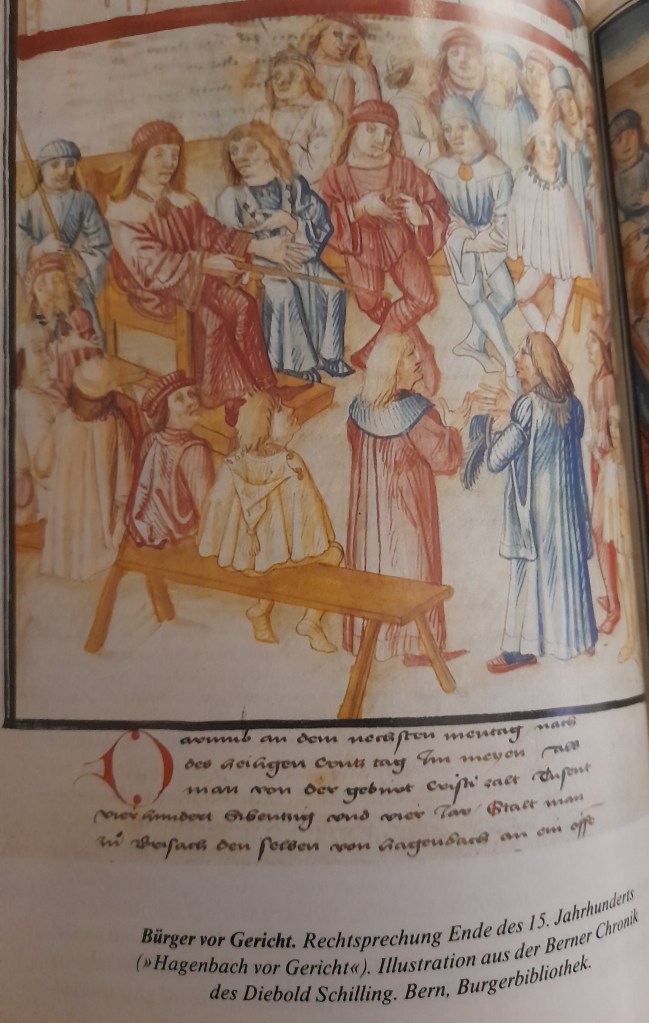 Darumb an dem nechsten mentag nach
des heiligen Crutz tag Im meyen als
man von der geburt Cristi zalt Tusent
vierhundert Sibentzig vnd vier Jar Stalt man
zů Brisach den selben von hagenbach an ein offe
Bürger vor Gericht. Rechtsprechung Ende des 15. Jahrhunderts
(»Hagenbach vor Gericht«). Illustration aus der Berner Chronik
des Diebold Schilling. Bern, Burgerbibliothek.